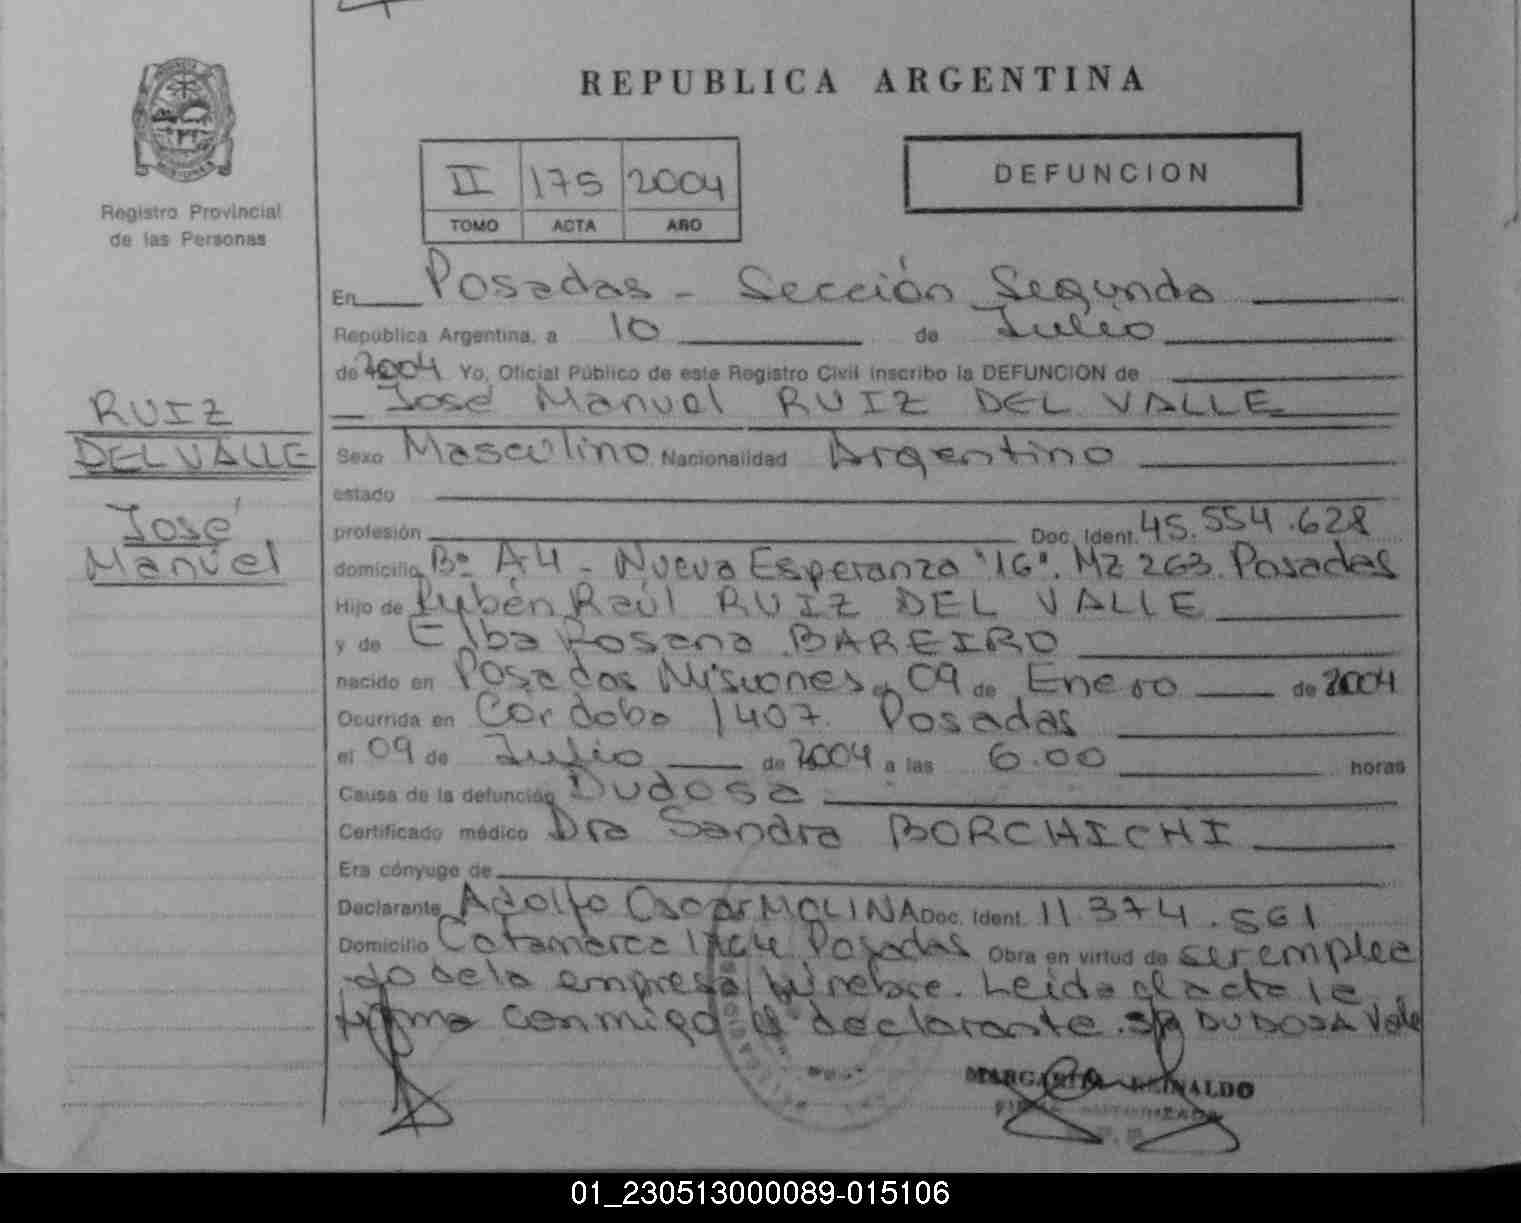 REPUBLICA ARGENTINA
DEFUNCION
II 175 2004
TOMO ACTA AÑO
Registro Provincial
de las Personas
RUIZ
DEL VALLE
José
Manuel
En Posadas - Sección Segunda
República Argentina, a 10 de Julio
de 2004 Yo, Oficial Público de este Registro Civil inscribo la DEFUNCION de
José Manuel RUIZ DEL VALLE
Sexo Masculino Nacionalidad Argentino
estado
profesión Doc. Ident. 45.554.628
domicilio Bº A4 - Nueva Esperanza "16". MZ 263. Posadas
Hijo de Rubén Raúl RUIZ DEL VALLE
y de Elba Rosana BAREIRO
nacido en Posadas Misiones el 09 de Enero de 2004
Ocurrida en Córdoba 1407. Posadas
el 09 de Julio de 2004 a las 6.00 horas
Causa de la defunción Dudosa
Certificado médico Dra Sandra BORCHICHI
Era cónyuge de
Declarante Adolfo Oscar MOLINA Doc. Ident. 11.374.561
Domicilio Catamarca Posadas Obra en virtud de ser emplea
do de la empresa fúnebre. Leida el acta la
firma conmigo el declarante. DUDOSA Vale
MARGARITA REINALDO
FIRMA AUTORIZADA
01_230513000089-015106